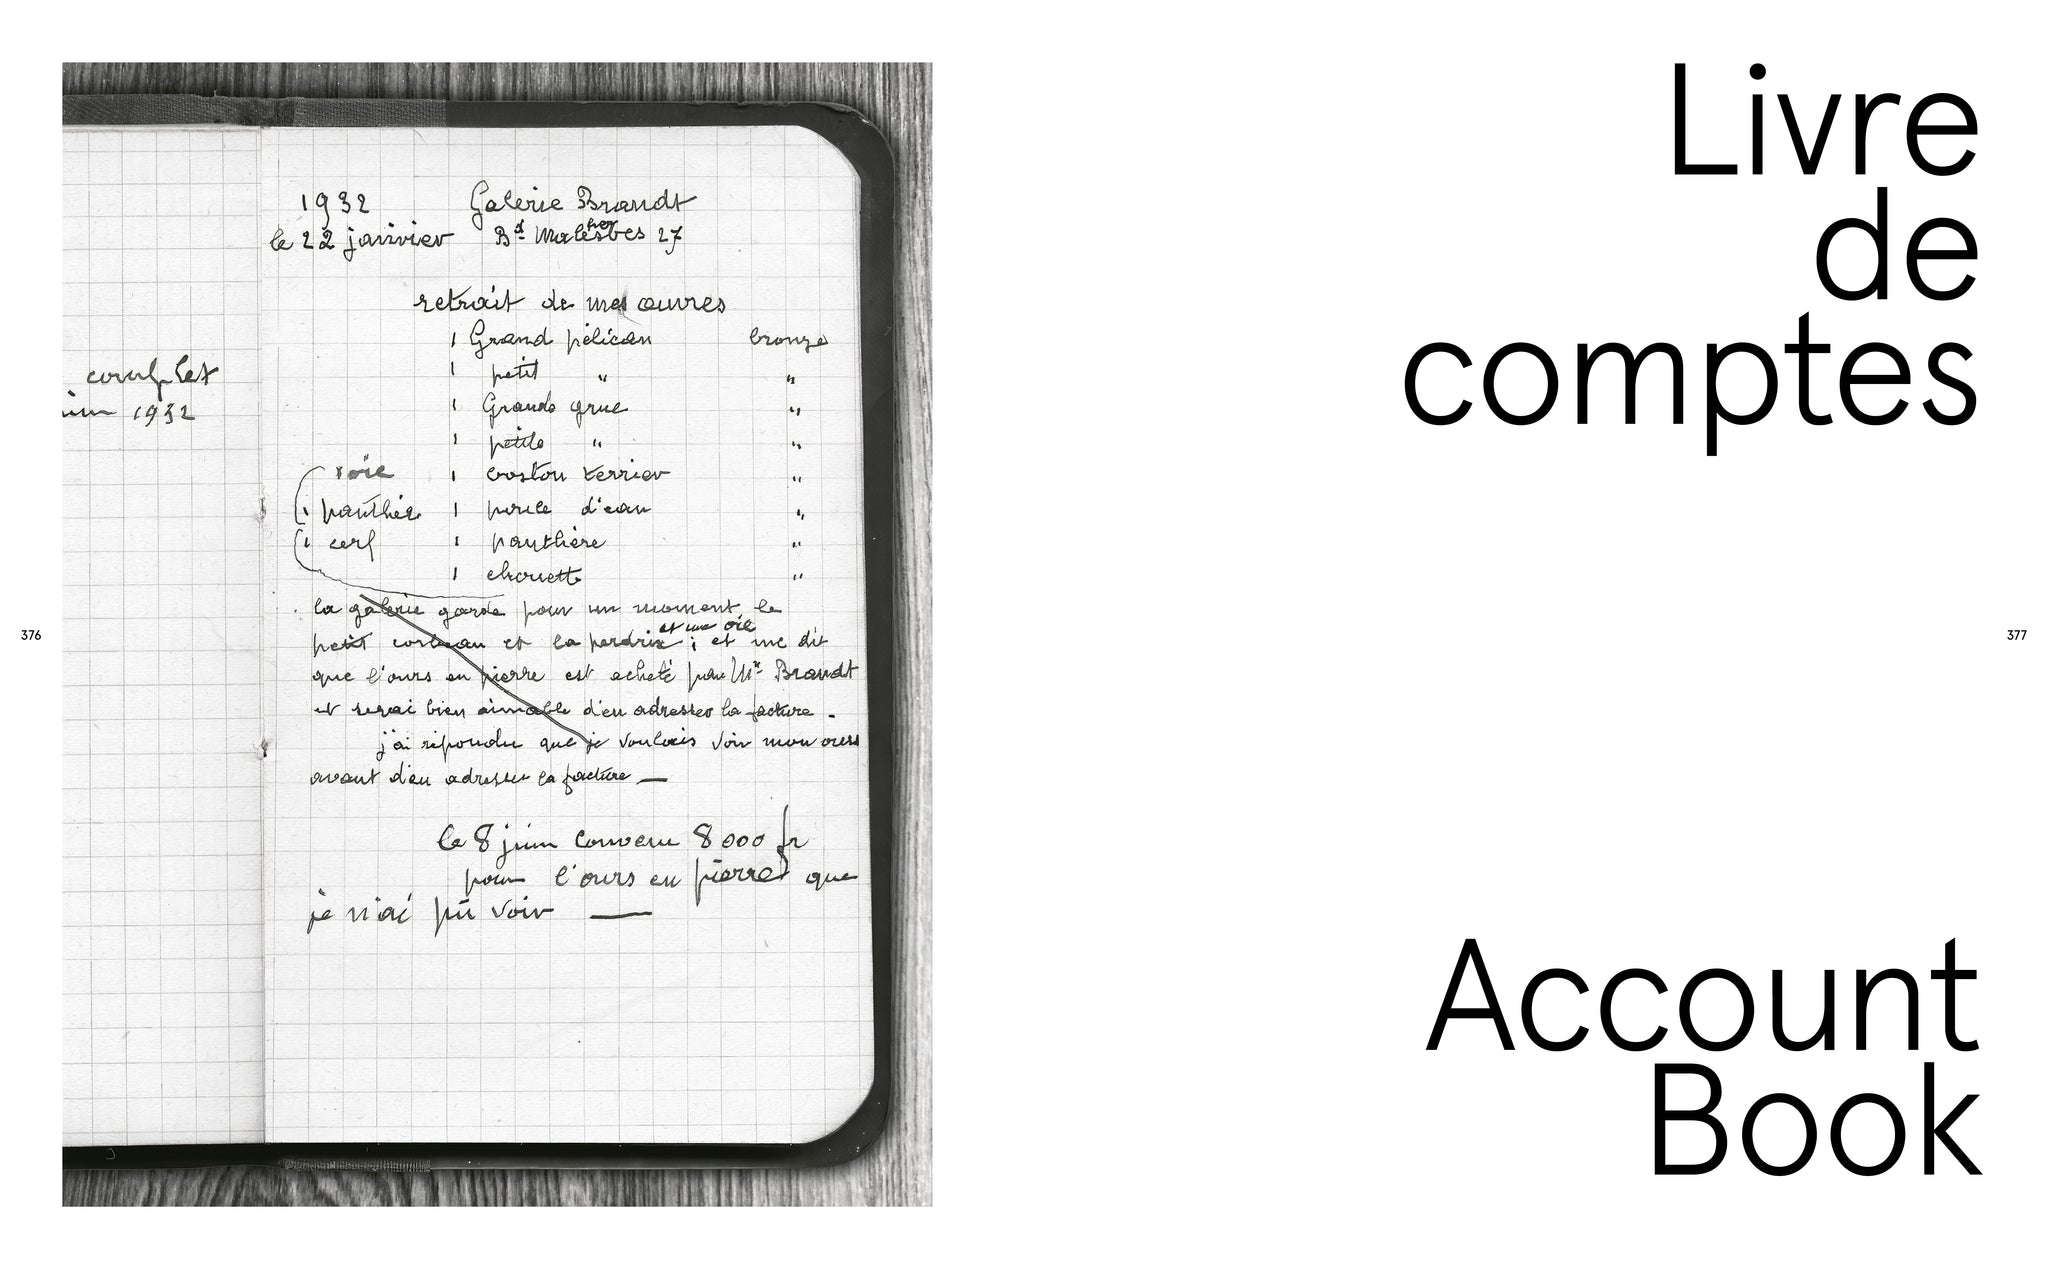 complet
1932
1932 Galerie Brandt
le 22 janvier Bd Malesherbes 27
retrait de mes œuvres
1 Grand pélican bronze
1 petit " "
1 Grande grue "
1 petite " "
1 oie 1 boston terrier "
1 panthère 1 poule d'eau "
1 cerf 1 panthère "
1 chouette "
la galerie garde pour un moment le
petit corbeau et la perdrix et une oie ; et me dit
que l'ours en pierre est acheté par Mr Brandt
et serai bien aimable d'en adresser la facture .
j'ai répondu que je voulais voir mon ours
avant d'en adresser la facture —
le 8 juin convenu 8000 fr
pour l'ours en pierre que
je n'ai pu voir —
376
Livre
de
comptes
377
Account
Book